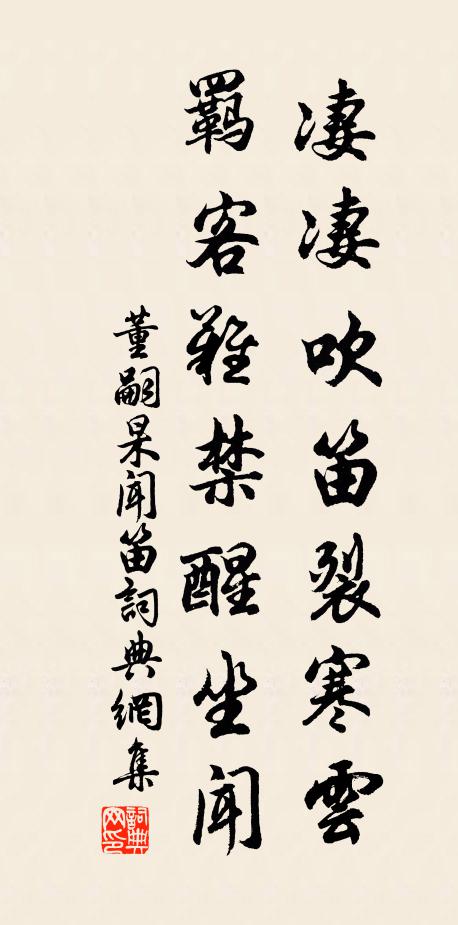 凄凄吹笛裂寒雲
羈客難禁醒坐聞
董嗣杲聞笛詞典網集
詞典網印